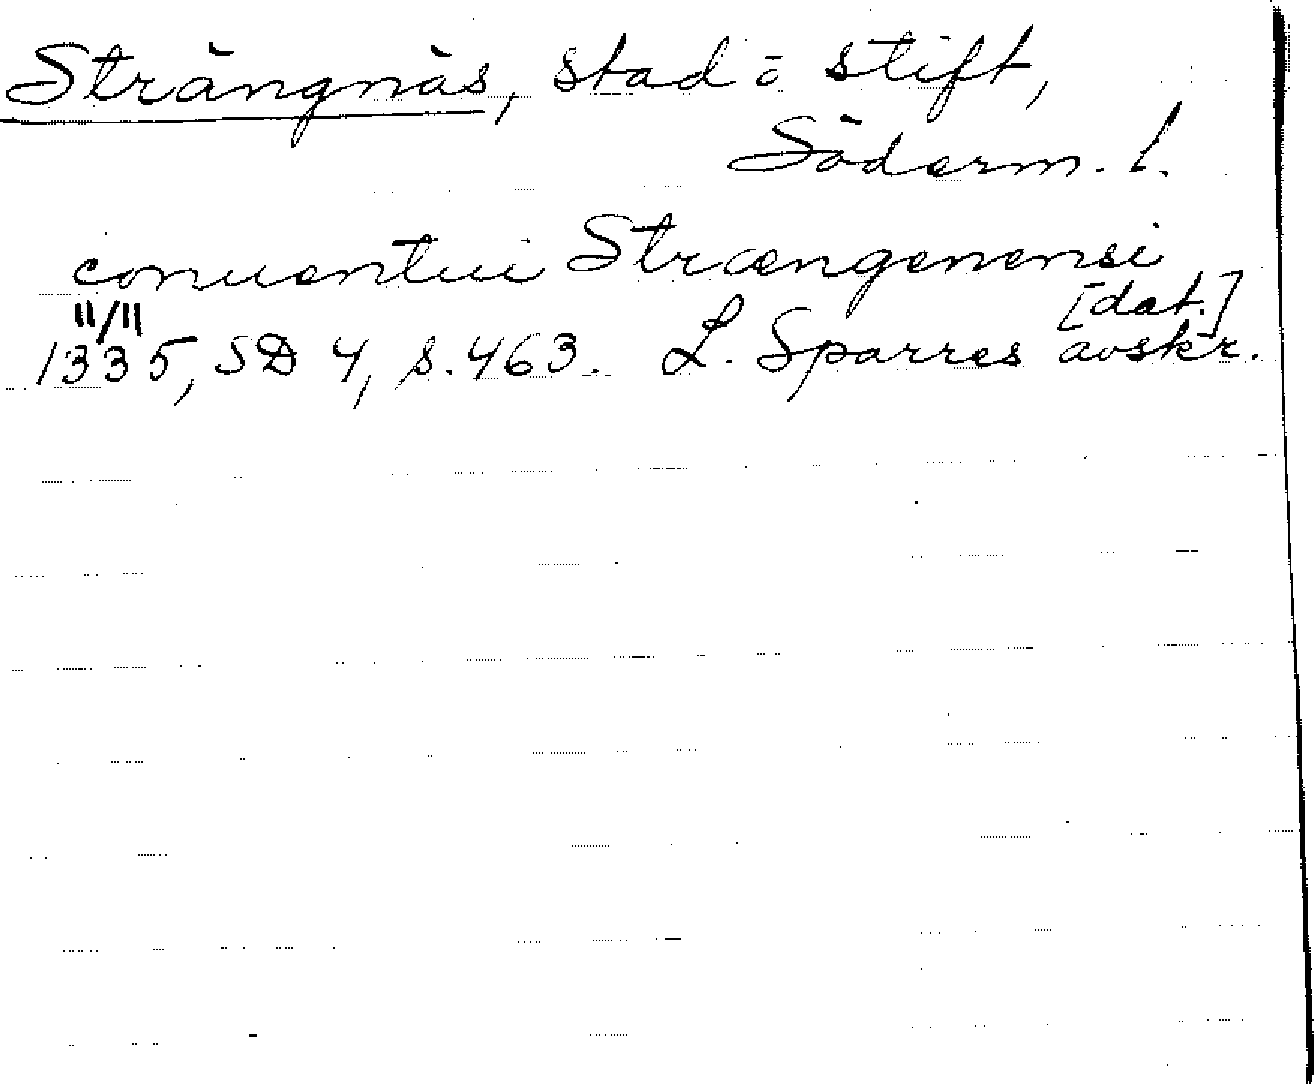 Strängnäs, stad o stift,
Söderm. l.
conuentui Strængenensi
11/11
[dat.]
1335, SD 4, s. 463. L. Sparres avskr.